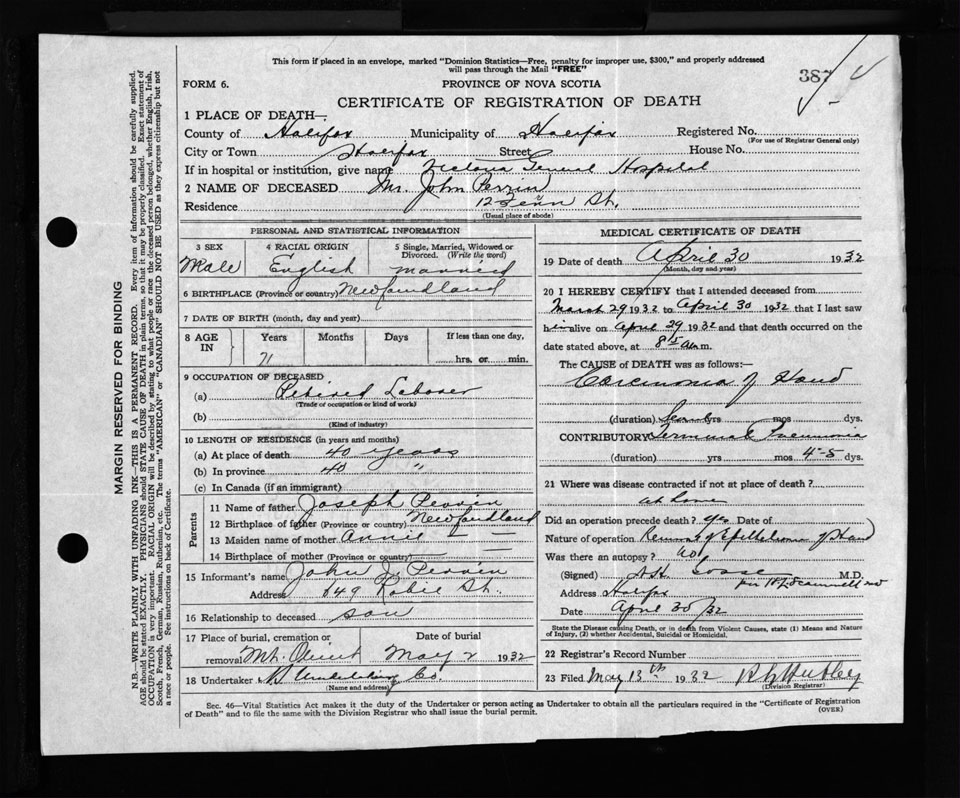 This form if placed in an envelope, marked "Dominion Statistics—Free, penalty for improper use, $300," and properly addressed
will pass through the Mail "FREE"
387
FORM 6.
PROVINCE OF NOVA SCOTIA
CERTIFICATE OF REGISTRATION OF DEATH
1 PLACE OF DEATH—
County of Halifax Municipality of Halifax Registered No.
(For use of Registrar General only)
City or Town Halifax Street House No.
If in hospital or institution, give name Victoria General Hospital
2 NAME OF DECEASED Mr. John Perrin
Residence 12 St.
(Usual place of abode)
PERSONAL AND STATISTICAL INFORMATION
3 SEX 4 RACIAL ORIGIN 5 Single, Married, Widowed or Divorced. (Write the word)
Male English married
6 BIRTHPLACE (Province or country) Newfoundland
7 DATE OF BIRTH (month, day and year)
8 AGE IN Years Months Days If less than one day,
71 hrs. or min.
9 OCCUPATION OF DECEASED
(a) Retired Laborer
(Trade of occupation or kind of work)
(b)
(Kind of industry)
10 LENGTH OF RESIDENCE (in years and months)
(a) At place of death 40 years
(b) In province 40 "
(c) In Canada (if an immigrant)
Parents
11 Name of father Joseph Perrin
12 Birthplace of father (Province or country) Newfoundland
13 Maiden name of mother Annie — —
14 Birthplace of mother (Province or country) — —
15 Informant's name John J. Perrin
Address 649 Robie St.
16 Relationship to deceased son
17 Place of burial, cremation or Date of burial
removal Mt. Olivet May 2 1932
18 Undertaker Undertaking Co.
(Name and address)
MEDICAL CERTIFICATE OF DEATH
19 Date of death April 30 1932
(Month, day and year)
20 I HEREBY CERTIFY that I attended deceased from
March 29 1932 to April 30 1932 that I last saw
him alive on April 29 1932 and that death occurred on the
date stated above, at 8 15 a.m.
The CAUSE of DEATH was as follows:—
Carcinoma of Hand
(duration) yrs mos dys.
CONTRIBUTORY Terminal Pneumonia
(duration) yrs mos 4-5 dys.
21 Where was disease contracted if not at place of death?
at home
Did an operation precede death? yes Date of
Nature of operation Removal of Epithelioma of Hand
Was there an autopsy? no
(Signed) M.D.
Address Halifax
Date April 30/32
State the Disease causing Death, or in death from Violent Causes, state (1) Means and Nature
of Injury, (2) whether Accidental, Suicidal or Homicidal.
22 Registrar's Record Number
23 Filed May 13th 1932
(Division Registrar)
Sec. 46—Vital Statistics Act makes it the duty of the Undertaker or person acting as Undertaker to obtain all the particulars required in the "Certificate of Registration
of Death" and to file the same with the Division Registrar who shall issue the burial permit.
(OVER)
MARGIN RESERVED FOR BINDING
N.B.—WRITE PLAINLY WITH UNFADING INK—THIS IS A PERMANENT RECORD. Every item of information should be carefully supplied.
AGE should be stated EXACTLY. PHYSICIANS should STATE CAUSE OF DEATH in plain terms, so that it may be properly classified. Exact statement of
OCCUPATION is very important. RACIAL ORIGIN will be described by stating to what people or race the deceased person belonged, whether English, Irish,
Scotch, French, German, Russian, Ruthenian, etc. The terms "AMERICAN" or "CANADIAN" SHOULD NOT BE USED as they express citizenship but not
a race or people. See instructions on back of Certificate.